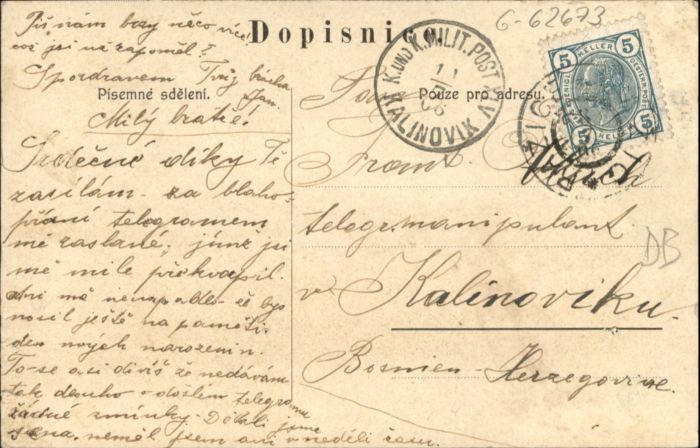 Piš nám brzy něco více
což jsi na zapoměl?
S pozdravem Tvůj bratr
Jan.
G-62673
Dopisnice
Písemné sdělení.
Pouze pro adresu.
K. UND K. MILIT. POST
KALINOVIK
5 HELLER 5
Milý bratře!
Srdečné díky Ti
zasílám za blaho-
přání telegramem
mě zaslané; jímž jsi
mě mile překvapil.
Ani mě nenapadlo že bys
nosil ještě na paměti
den mých narozenin.
To se asi divíš že nedávám
tak dlouho o došlém telegramu
žádné zmínky. Dělali jsme
sena, neměl jsem ani v neděli času.
Pan
Front
telegrmanipulant
v Kalinoviku.
Bosnien - Herzegovine.
DB